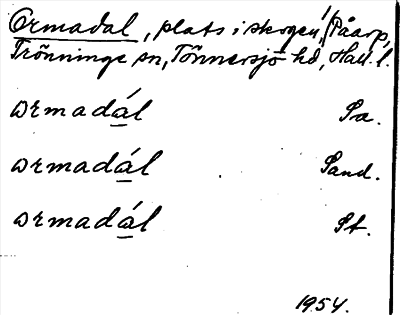 Ormadal, plats i skogen, Påarp,
Trönninge sn, Tönnersjö hd, Hall. l.
ormadál Sa.
ormadál Sand.
ormadál St.
1954.